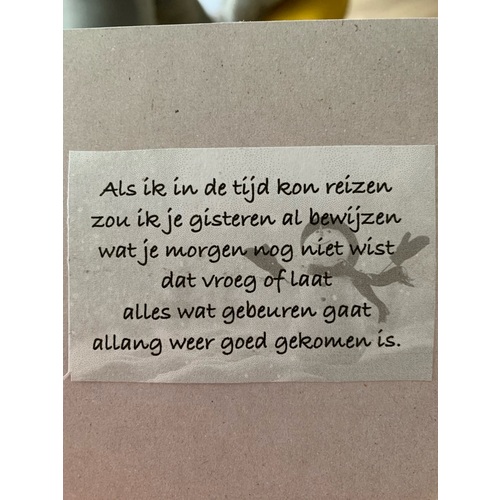 Als ik in de tijd kon reizen
zou ik je gisteren al bewijzen
wat je morgen nog niet wist
dat vroeg of laat
alles wat gebeuren gaat
allang weer goed gekomen is.